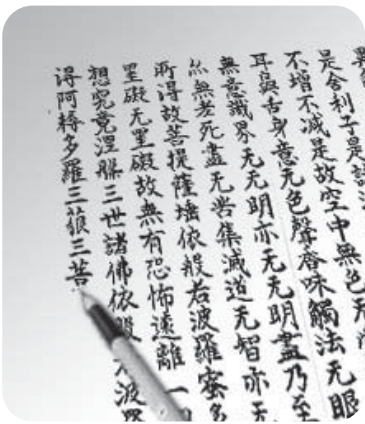 是舍利子是諸法
不增不減是故空中無色无
耳鼻舌身意无色聲香味觸法无眼
無意識界无无明亦无无明盡乃至
亦無老死盡无苦集滅道无智亦无
所得故菩提薩埵依般若波羅蜜多
罣礙无罣礙故無有恐怖遠離一
想究竟涅槃三世諸佛依般波羅
得阿耨多羅三藐三菩